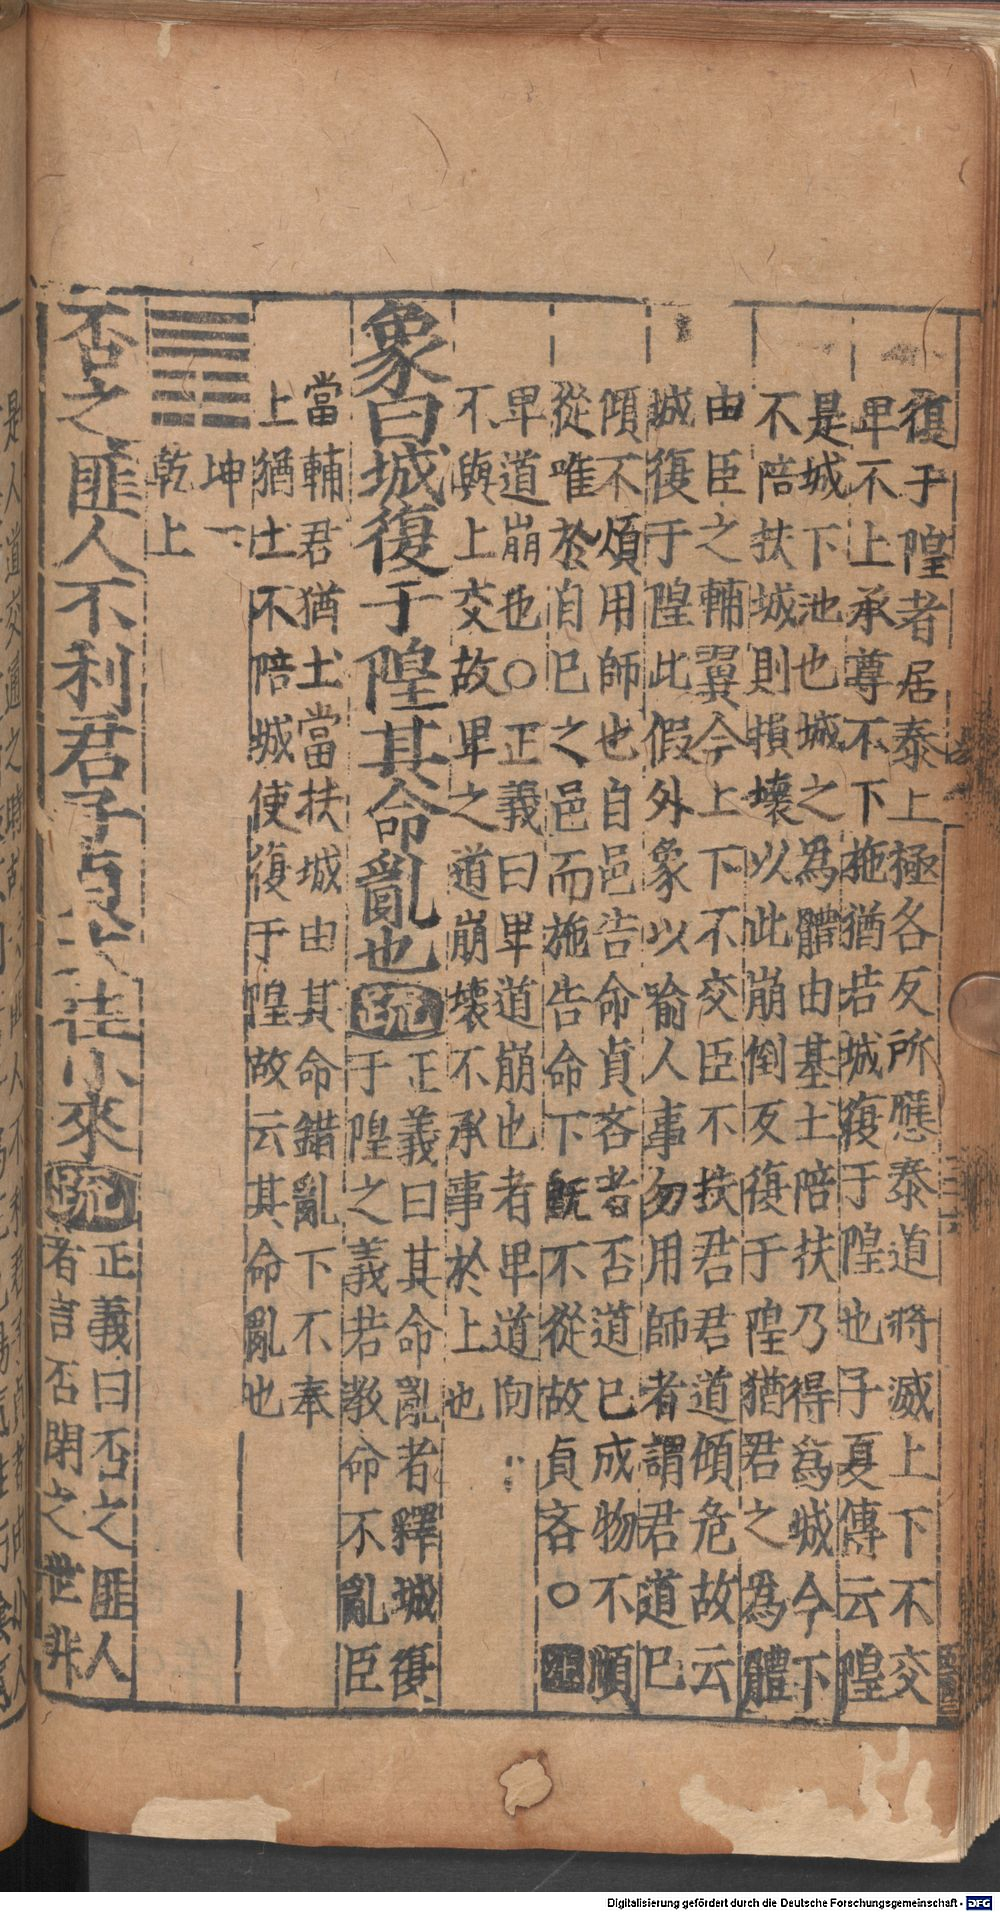 復于隍者居泰上極各反所應泰道將滅上下不交
卑不上承尊不下施猶若城復于隍也子夏傳云隍
是城下池也城之為體由基土陪扶乃得為城今下
不陪扶城則損壞以此崩倒反復于隍猶君之為體
由臣之輔翼今上下不交臣不扶君君道傾危故云
城復于隍此假外象以喻人事勿用師者謂君道已
傾不煩用師也自邑告命貞吝者否道已成物不順
從唯於自己之邑而施告命下既不從故貞吝○
卑道崩也○正義曰卑道崩也者卑道向
不與上交故卑之道崩壞不承事於上也
象曰城復于隍其命亂也疏
正義曰其命亂者釋城復
于隍之義若教命不亂臣
當輔君猶土當扶城由其命錯亂下不奉
上猶土不陪城使復于隍故云其命亂也
坤下
乾上
否之匪人不利君子貞大往小來疏
正義曰否之匪人
者言否閉之世非
Digitalisierung gefördert durch die Deutsche Forschungsgemeinschaft - DFG